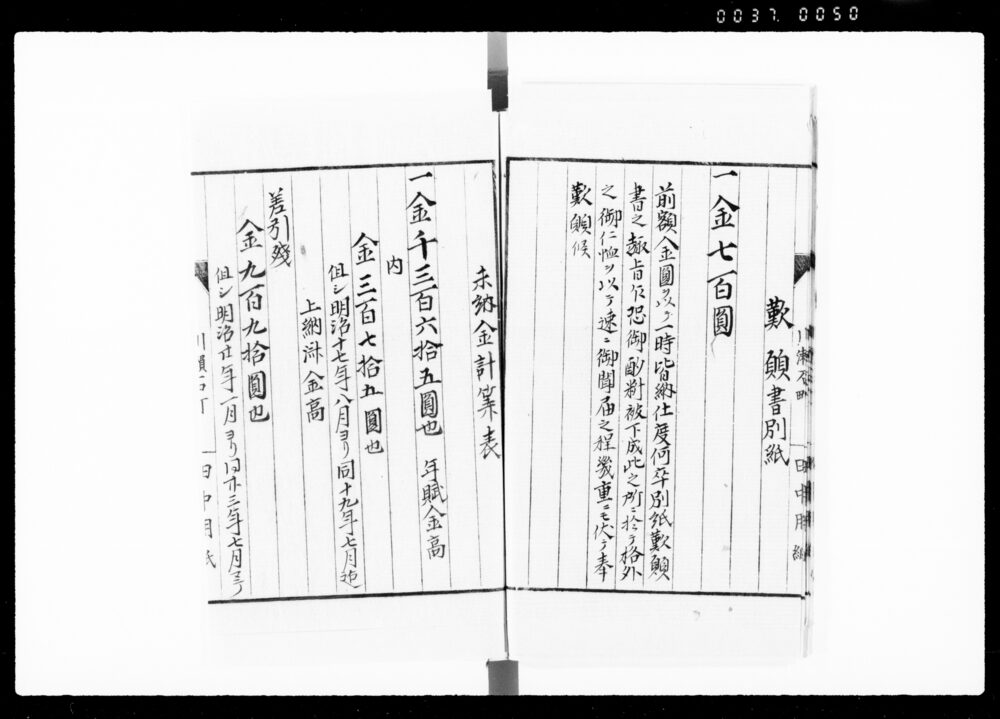 0037. 0050
歎願書別紙
一金七百圓
前額金圓ヲ以テ一時皆納仕度何卒別紙歎願
書之趣旨乍恐御酌料被下成此之所ニ於テ格外
之御仁恤ヲ以テ速ニ御聞届之程幾重ニモ伏テ奉
歎願候
田中用紙
未納金計算表
一金千三百六拾五圓也 年賦金高
内
金三百七拾五圓也
但シ明治十七年八月ヨリ同十九年七月迄
上納済金高
差引残
金九百九拾圓也
但シ明治廿年一月ヨリ同廿三年七月マテ
田中用紙